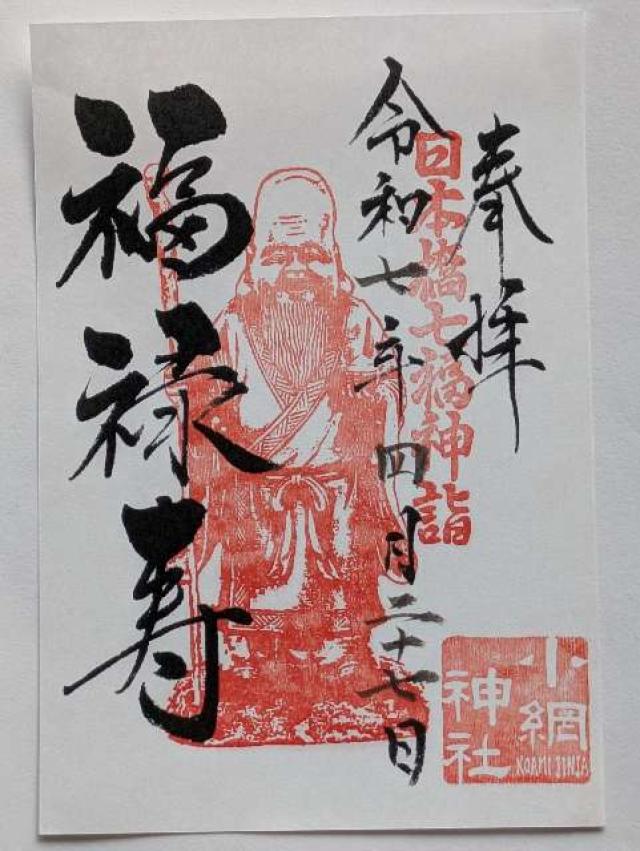 奉拝
日本橋七福神詣
令和七年四月二十七日
福禄寿
小網
神社
KOAMI JINJA